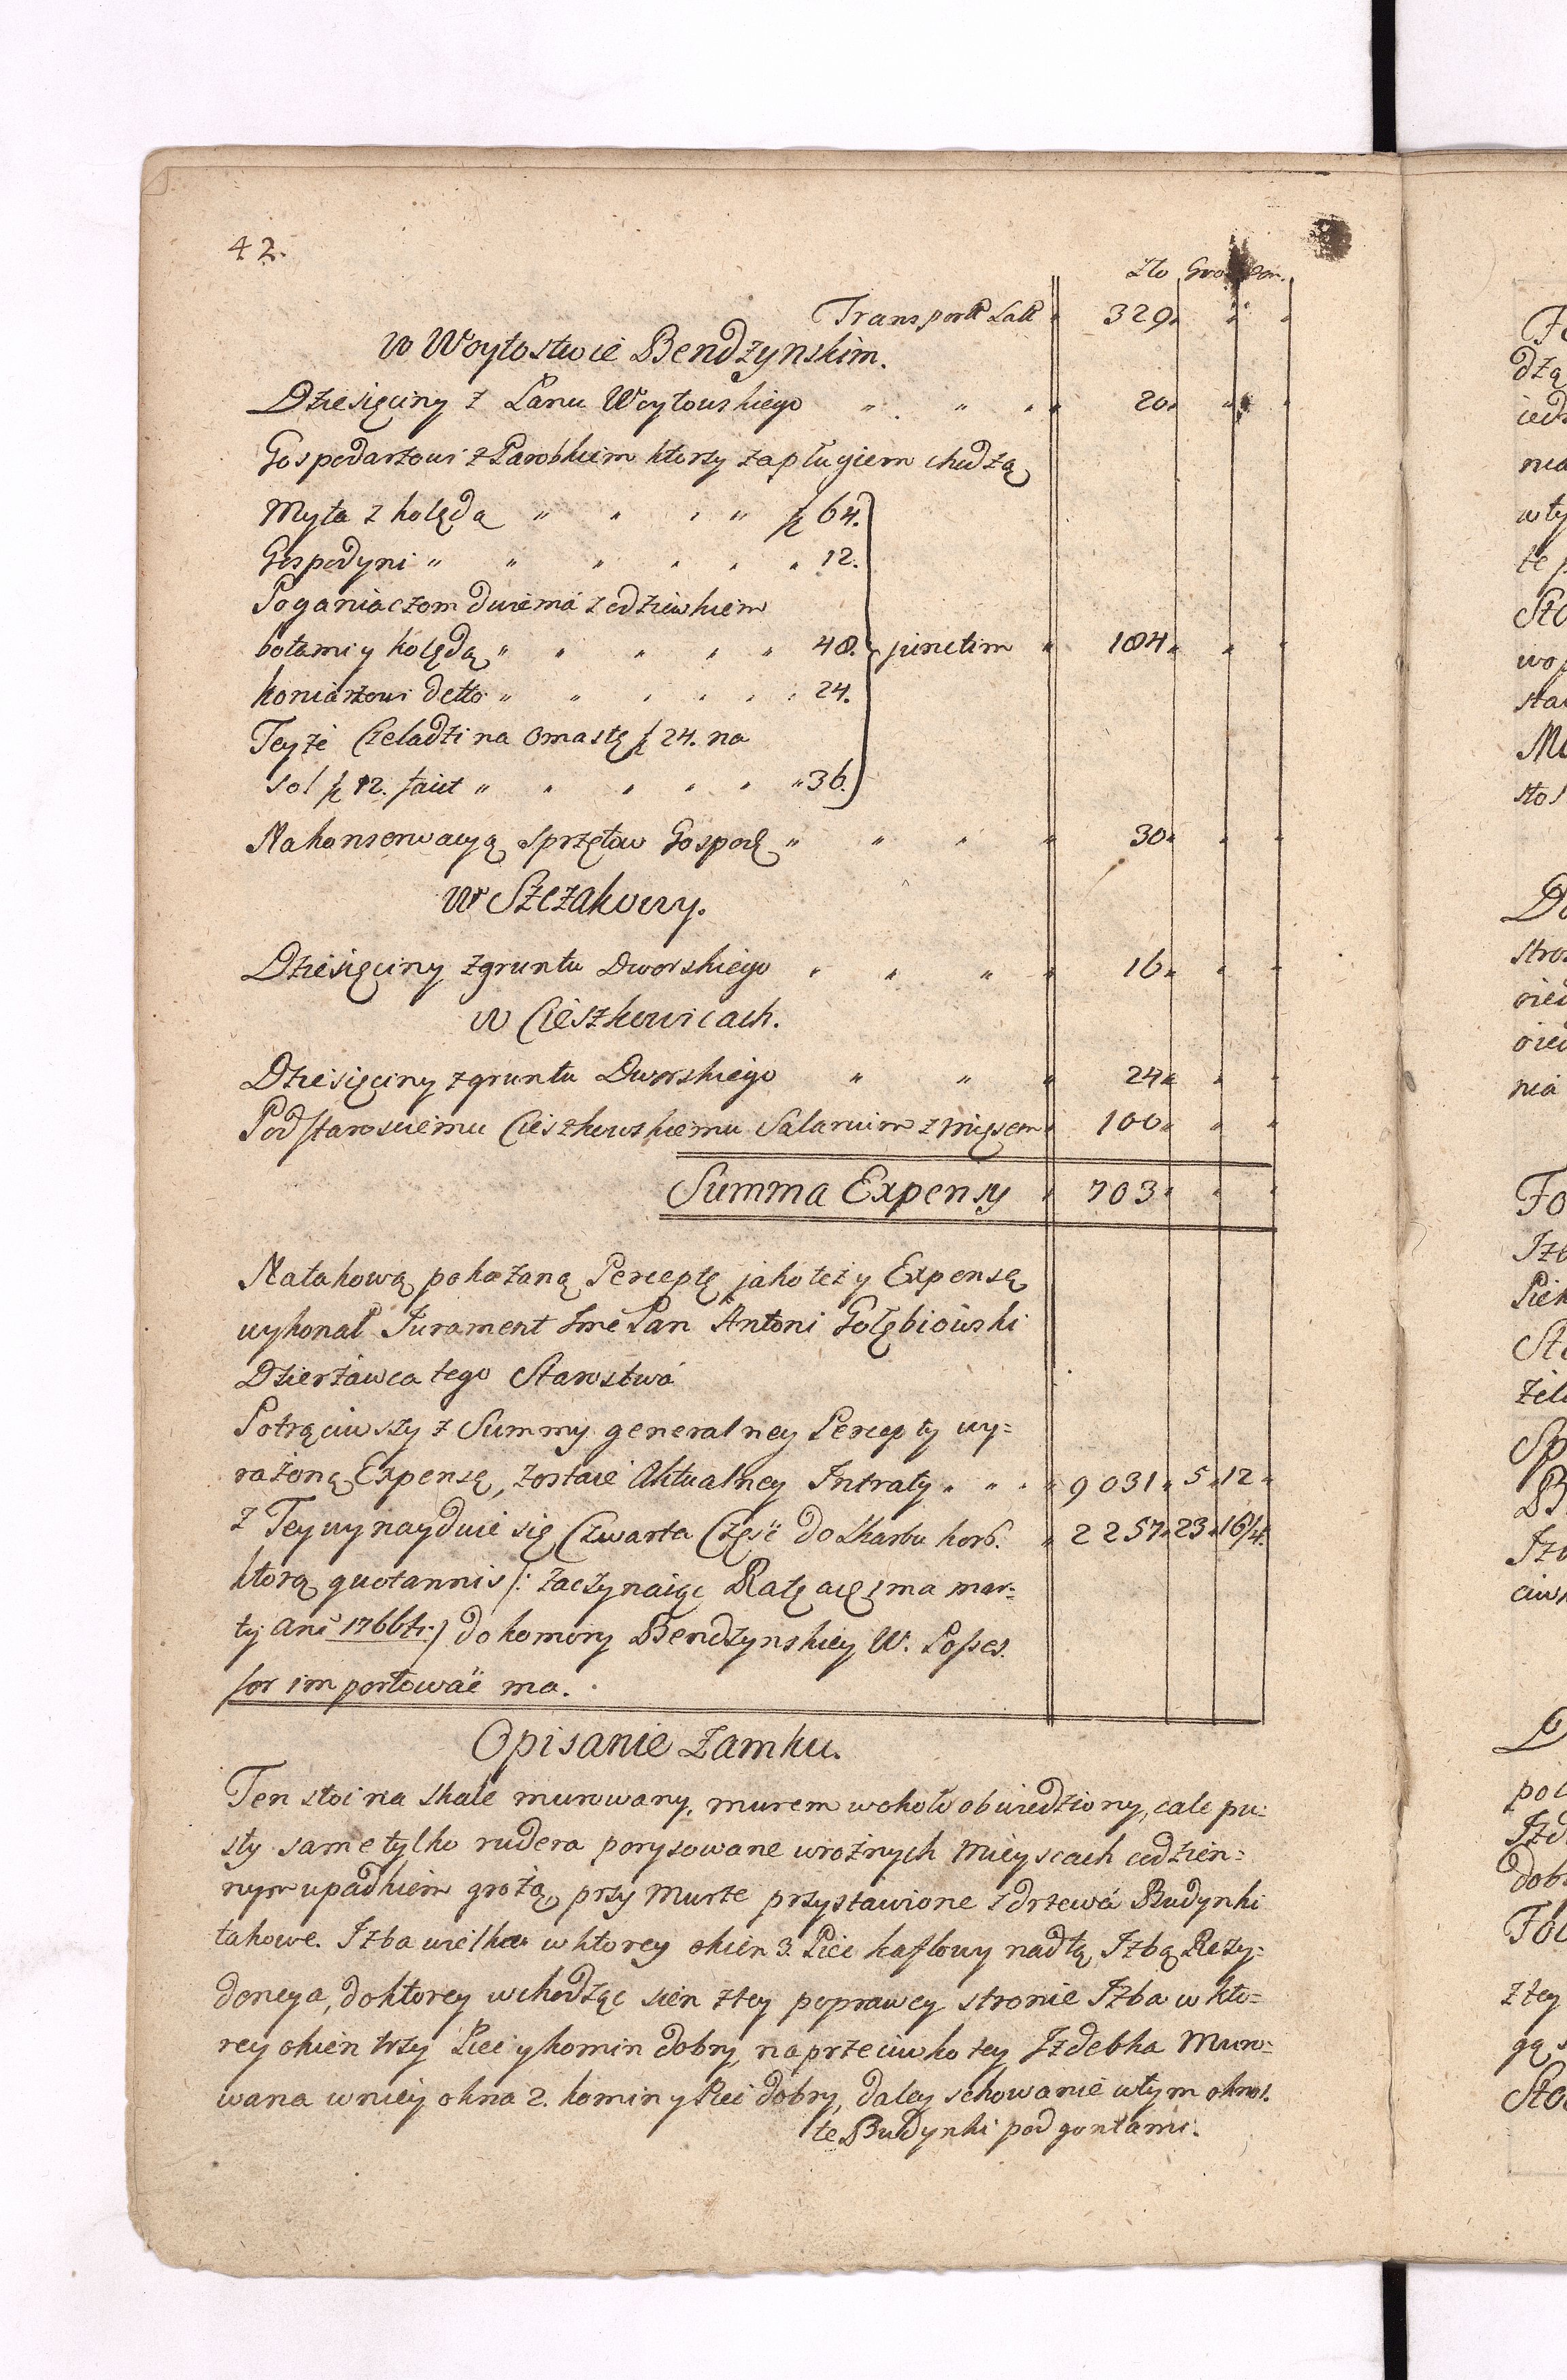 42.
Zło Gro Den.
Transport Lat " 329 " "
W Woytostwie Bendzynskim.
Dziesięciny z Łanu Woytowskiego " " " 20 " "
Gospodarzowi z Parobkiem ktorzy za pługiem chodzą
Myta z kolędą " " " " f 64.
Gospodyni " " " " " " 12.
Poganiaczom dwiema z odziewkiem
botami y kolędą " " " " " 48. junctim " 184 " "
koniarzowi detto " " " " " 24.
Teyże Czeladzi na omastę f 24. na
sol f 12. facit " " " " " 36.
Na konserwacyą sprzętow Gospod " " " " 30 " "
W Szczakowy.
Dziesięciny z gruntu Dworskiego " " " " 16 " "
w Cieszkowicach.
Dziesięciny z gruntu Dworskiego " " " 24 " "
Podstarosciemu Cieszkowskiemu Salarium z mięsem " 100 " "
Summa Expensy " 703 " "
Na takową pokazaną Perceptę jako też y Expensę
wykonał Jurament Jmć Pan Antoni Gołębiowski
Dzierżawca tego Starostwa
Potrąciwszy z Summy generalney Percepty wy=
rażoną Expensę, zostaie Aktualney Intraty " " " 9031 " 5 " 12 "
z Tey wynayduie się Czwarta Częsć do Skarbu kor. " 2257 " 23 " 16/4.
ktorą quotannis /: zaczynaiąc Ratę a 1ma mar=
tij ani 1766ti :/ do komory Bendzynskiey W. Posses=
sor importować ma.
Opisanie Zamku.
Ten stoi na skale murowany, murem wokoło obwiedziony, cale pu=
sty same tylko rudera porysowane w rożnych mieyscach codzien=
nym upadkiem grożą, przy murze przystawione z drzewa Budynki
takowe. Izba wielka w ktorey okien 3. Piec kaflowy nad tą Izbą Rezy=
dencya, do ktorey wchodząc sien z tey po prawey stronie Izba w kto=
rey okien trzy Piec y komin dobry, naprzeciwko tey Izdebka Muro=
wana w niey okna 2. komin y Piec dobry, daley schowanie w tym okno 1.
te Budynki pod gontami.